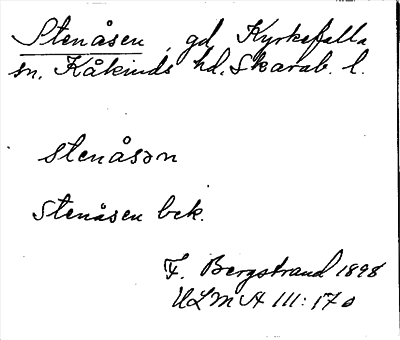 Stenåsen, gd, Kyrkefalla
sn. Kåkinds hd. Skarab. l.
stenåsən
Stenåsen bek.
F. Bergstrand 1898
ULMA 111:170